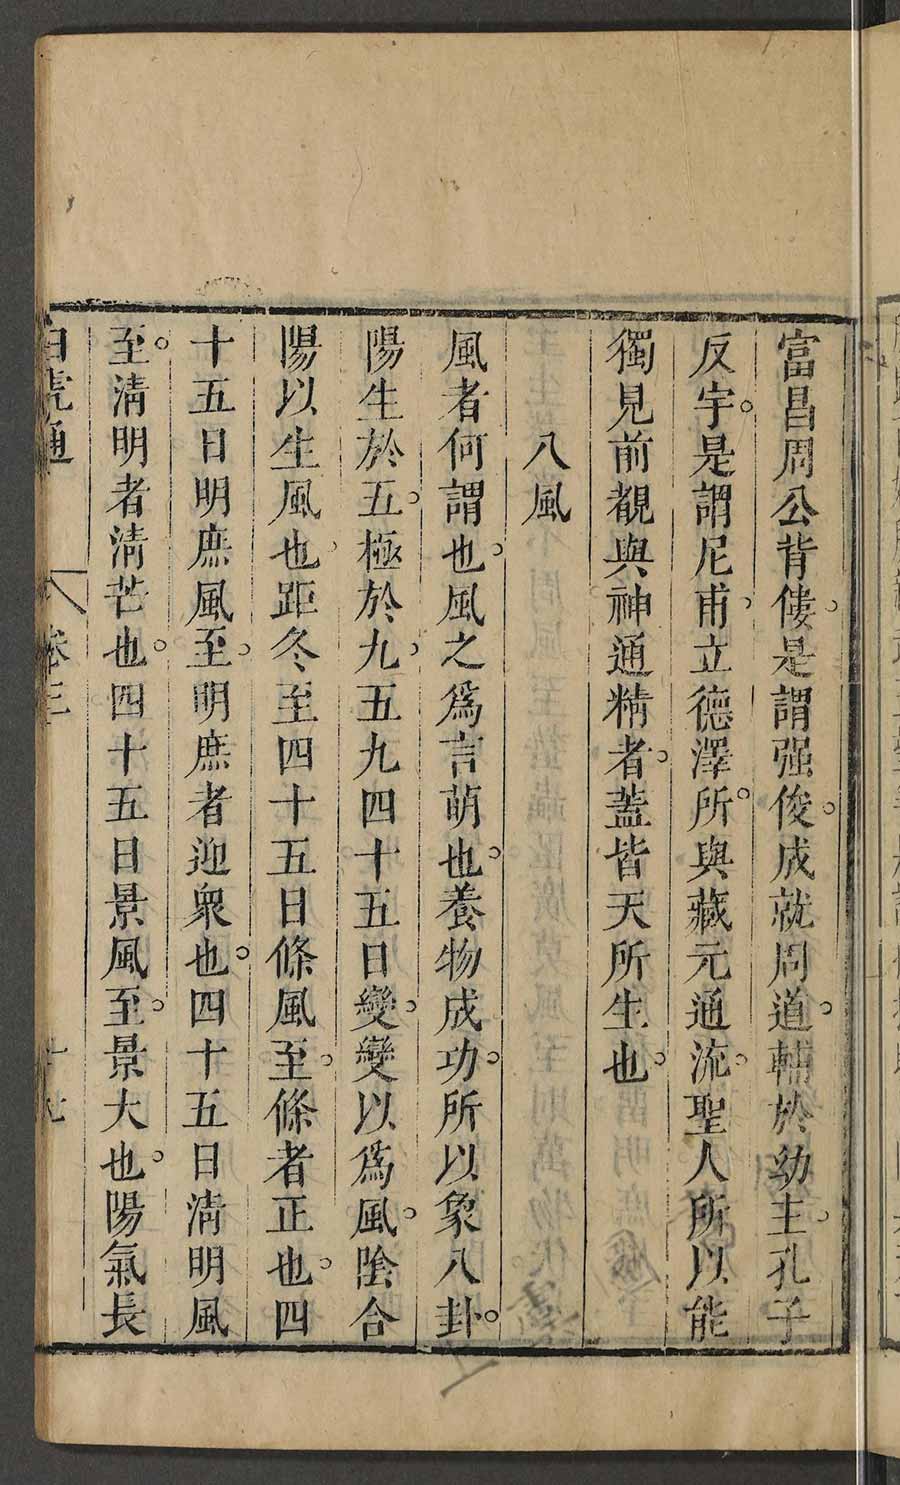 富昌周公背僂。是謂强俊。成就周道。輔於幼主。孔子
反宇。是謂尼甫。立德澤所。與藏元通流。聖人所以能
獨見前覩與神通精者。蓋皆天所生也。
八風
風者何謂也。風之爲言萌也。養物成功。所以象八卦。
陽生於五。極於九。五九四十五日變。變以爲風。陰合
陽以生風也。距冬至四十五日條風至。條者正也。四
十五日明庶風至。明庶者迎衆也。四十五日清明風
至。清明者清芒也。四十五日景風至。景大也。陽氣長
白虎通 卷三